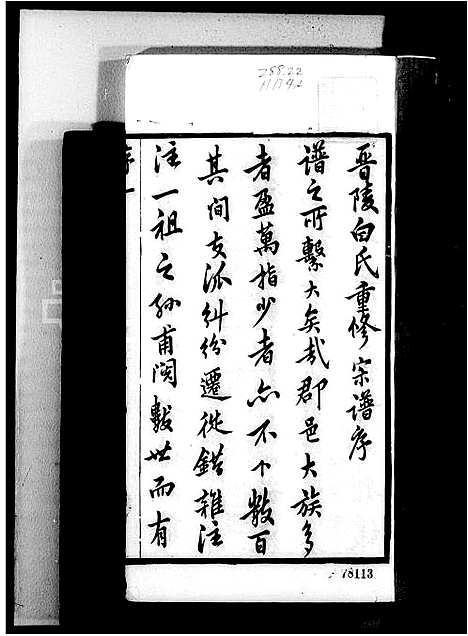 288.22
晋陵白氏重修宗譜序
譜之所繫大矣哉郡邑大族多
者盈萬指少者亦不下數百
其間支派糾紛遷徙錯雜注
注一祖之孫甫閱數世而有
序 一
78113